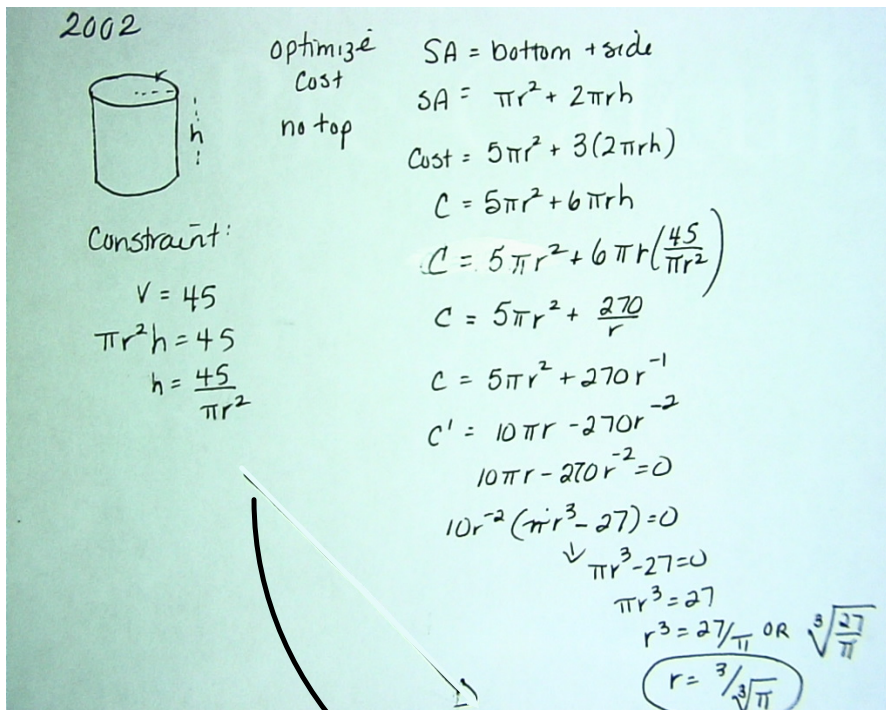 2002
optimize
Cost
no top
h
Constraint:
V = 45
πr²h = 45
h = 45/πr²
SA = bottom + side
SA = πr² + 2πrh
Cost = 5πr² + 3(2πrh)
C = 5πr² + 6πrh
C = 5πr² + 6πr(45/πr²)
C = 5πr² + 270/r
C = 5πr² + 270r⁻¹
C' = 10πr - 270r⁻²
10πr - 270r⁻² = 0
10r⁻²(πr³ - 27) = 0
↓ πr³ - 27 = 0
πr³ = 27
r³ = 27/π OR ³√(27/π)
r = 3/³√π